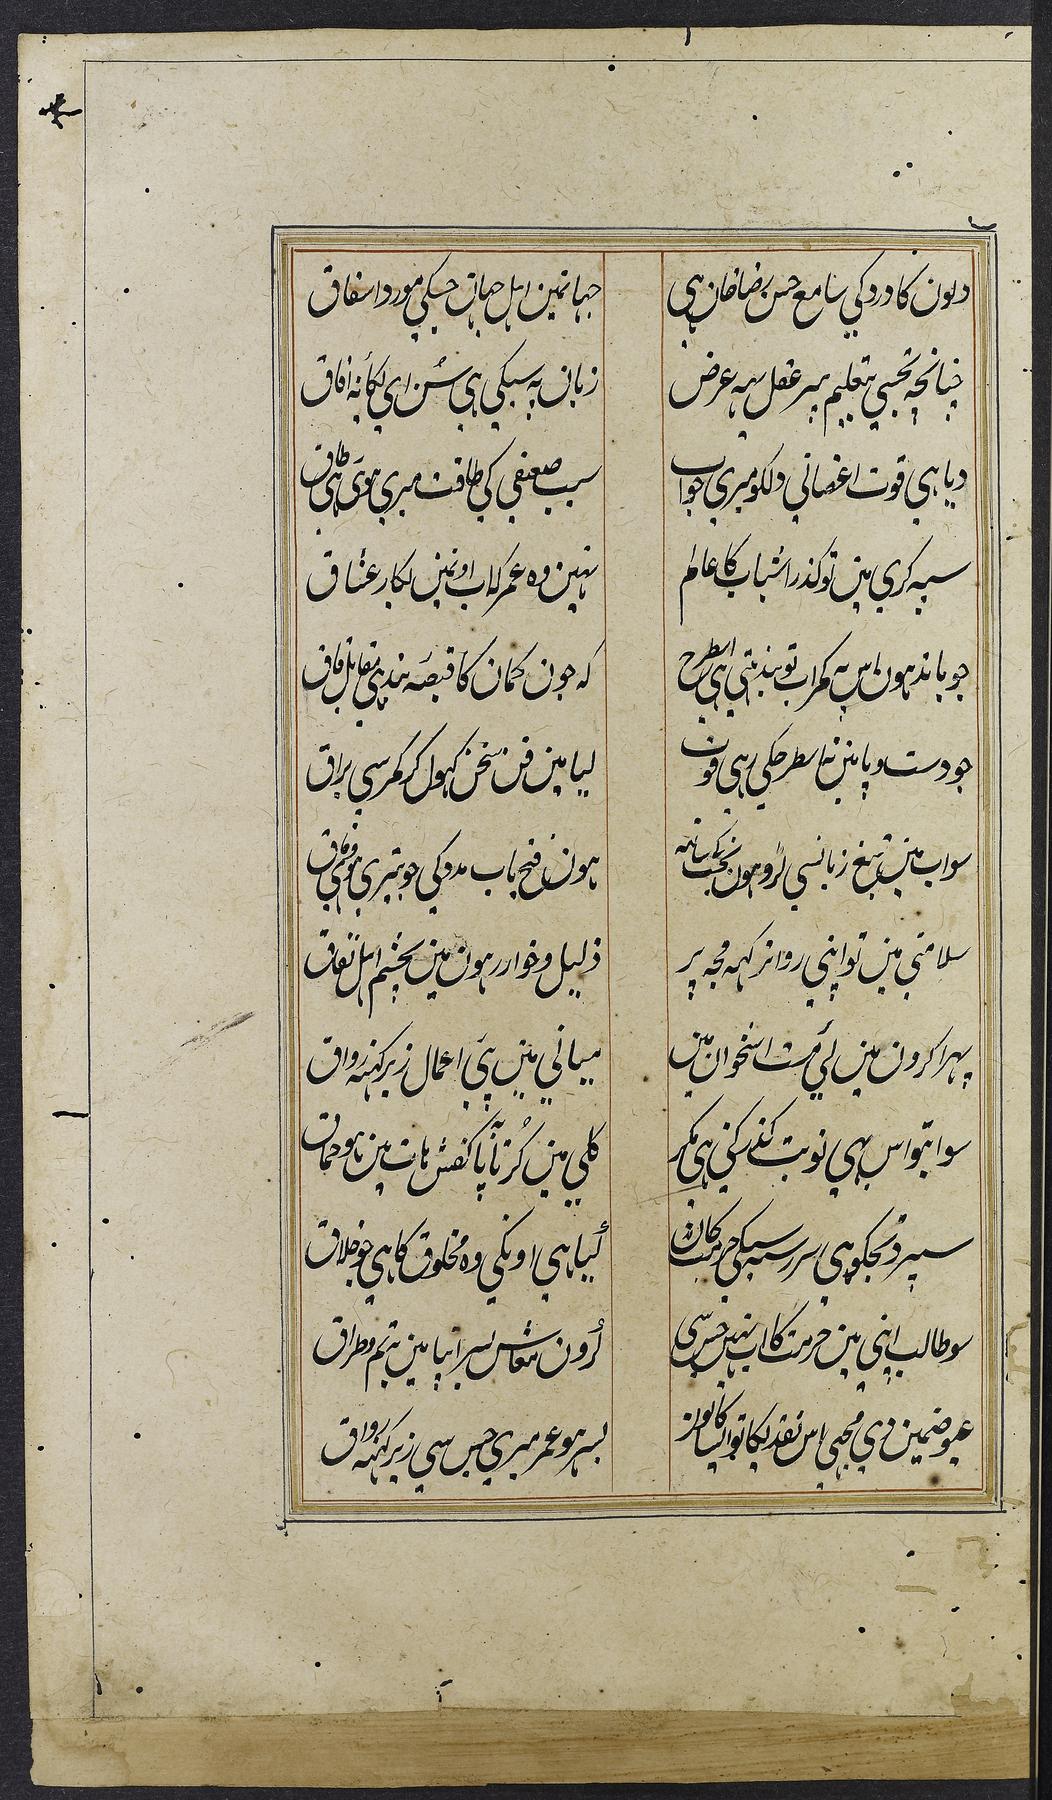 دلون کا درد کی سامع حسن رضا خان ہی
جہانمین اہل جہان جسکی مورد اشفاق
چنانچہ تجسی بتعلیم پیر عقل یہہ عرض
زبان پہ سبکی ہی سن ای یکانہ افاق
دیا ہی قوت اعضانی دلکو میری جواب
سبب ضعیفی کی طاقت میری ہوی ہی طاق
سپہ کری مین تو کذرا شباب کا عالم
نہین وہ عمر کہ اب اونمین لکار عشاق
جو باندہون اس پہ کمر اب تو بندہتی ہی اسطرح
کہ جون کمان کا قبضہ بندہی مقابل فاق
جو دست و پا مین نہ اسطرحکی رہی قوت
لیا مین فن سخن کہول کر کمر سی یراق
سو اب مین تیغ زبانسی لڑو ہون بخت کی ساتہہ
ہون فتحیاب مدد کی جو تیری ہو قمچاق
سلامتی مین تو اپنی روا نرکہہ مجہ پر
ذلیل و خوار رہون مین بچشم اہل نفاق
پہرا کرون مین لئی مشت استخوان مین
میانی مین پئی اعمال زیر کہنہ رواق
سوا تو اس بہی نوبت کذر کئی ہی مکر
کلی مین کرتا پا کفش ہات مین ہو چماق
سپرد تجکو ہی سررشتہ سبکی حرمت کا
کیا ہی اونکی وہ مخلوق کا ہی جو خلاق
سو طالب اپنی مین حرمت کا اب نہین جس سی
کرون معاش بسر اپنا مین بتم و طراق
عیوضمین دی مجہی اس نقدیکا تو ایسا کانون
بسر ہو عمر میری جس سی زیر کہنہ رواق